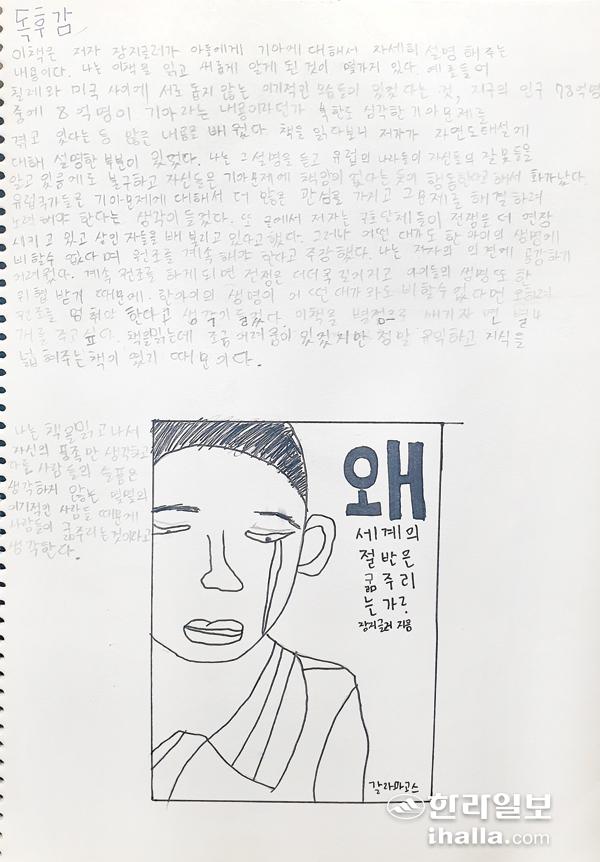 독후감
이책은 저자 장지글러가 아들에게 기아에 대해서 자세히 설명 해 주는
내용이다. 나는 이책을 읽고 새롭게 알게 된 것이 몇가지 있다. 예를들어
칠레와 미국 사이에 서로 돕지 않는 이기적인 모습들이 있었다는 것, 지구의 인구 78억명
중에 8억명이 기아라는 내용이라던가 북한도 심각한 기아문제를
겪고 있다는 등 많은 내용을 배웠다. 책을 읽다보니 저자가 자연도태설에
대해 설명한 부분이 있었다. 나는 그 설명을 듣고 유럽의 나라들이 자신들의 잘못들을
알고 있음에도 불구하고 자신들은 기아문제에 책임이 없다는 듯이 행동한것 해서 화가났다.
유럽국가들은 기아문제에 대해서 더 많은 관심을 가지고 그 문제를 해결하려
노력해야 한다는 생각이 들었다. 또 글에서 저자는 구호단체들이 전쟁을 더 연장
시키고 있고 상인 자들을 배 불리고 있다고 했다. 그러나 어떤 대가도 한 아이의 생명에
비할수 없다며 원조를 계속 해야 한다고 주장했다. 나는 저자의 의견에 공감하기
어려웠다. 계속 원조를 하게되면 전쟁은 더더욱 길어지고 아이들의 생명 또한
위협 받기 때문에. 한아이의 생명이 어떤 대가와도 비할수 없다면 오히려
원조를 멈춰야 한다고 생각이 들었다. 이책을 별점으로 매기자면 별 4
개를 주고 싶다. 책을읽는데 조금 어려움이 있었지만 정말 유익하고 지식을
넓혀주는 책이 였기 때문이다.
나는 책을읽고나서
자신의 풍족만 생각하고
다른 사람들의 슬픔은
생각하지 않는 몇몇의
이기적인 사람들 때문에
사람들이 굶주리는것이라고
생각한다.
왜
세계의
절반은
굶주리
는가?
장지글러 지음
갈라파고스
한라일보
ihalla.com